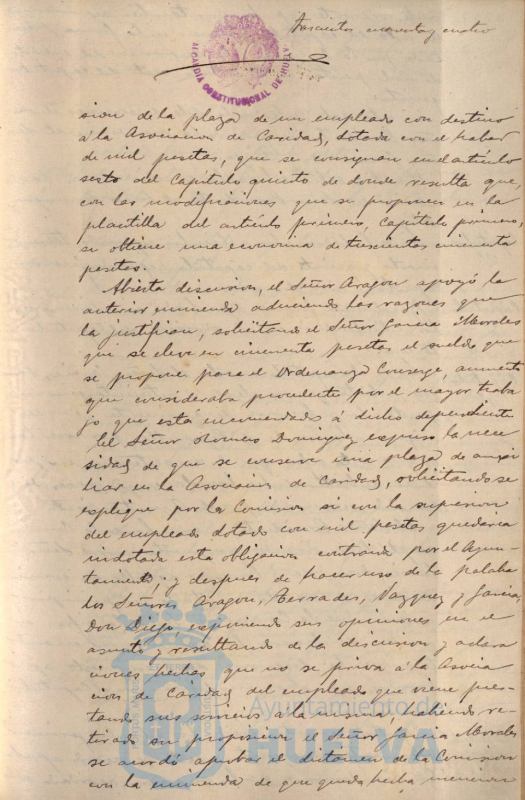 Trescientos cuarenta y cuatro
ALCALDIA CONSTITUCIONAL DE HUELVA
sion de la plaza de un empleado con destino
á la Asociacion de Caridad, dotada con el haber
de mil pesetas, que se consignan en el artículo
sesto del Capítulo quinto de donde resulta que,
con las modificaciones que se proponen en la
plantilla del artículo primero, Capítulo primero,
se obtiene una economia de trescientas cincuenta
pesetas.
Abierta discusion, el Señor Aragon apoyó la
anterior enmienda aduciendo las razones que
la justifican, solicitando el Señor Garcia Morales
que se eleve en cincuenta pesetas el sueldo que
se propone para el Ordenanza Conserge, aumento
que consideraba procedente por el mayor traba
jo que está encomendado á dicho dependiente
El Señor Romero Dominguez expuso la nece
sidad de que se conserve una plaza de auxi
liar en la Asociacion de Caridad, solicitando se
explique por la Comision si con la supresion
del empleado dotado con mil pesetas quedaria
indotada esta obligacion contraida por el Ayun
tamiento; y despues de hacer uso de la palabra
los Señores Aragon, Terrades, Vazquez y Garcia,
Don Diego, exponiendo sus opiniones en el
asunto y resultando de la discusion y aclara
ciones hechas que no se priva á la Asocia
cion de Caridad del empleado que viene pres
tando sus servicios á la misma, habiendo re
tirado su proposicion el Señor Garcia Morales
se acordó aprobar el dictámen de la Comision
con la enmienda de que queda hecha mencion
Ayuntamiento de
HUELVA